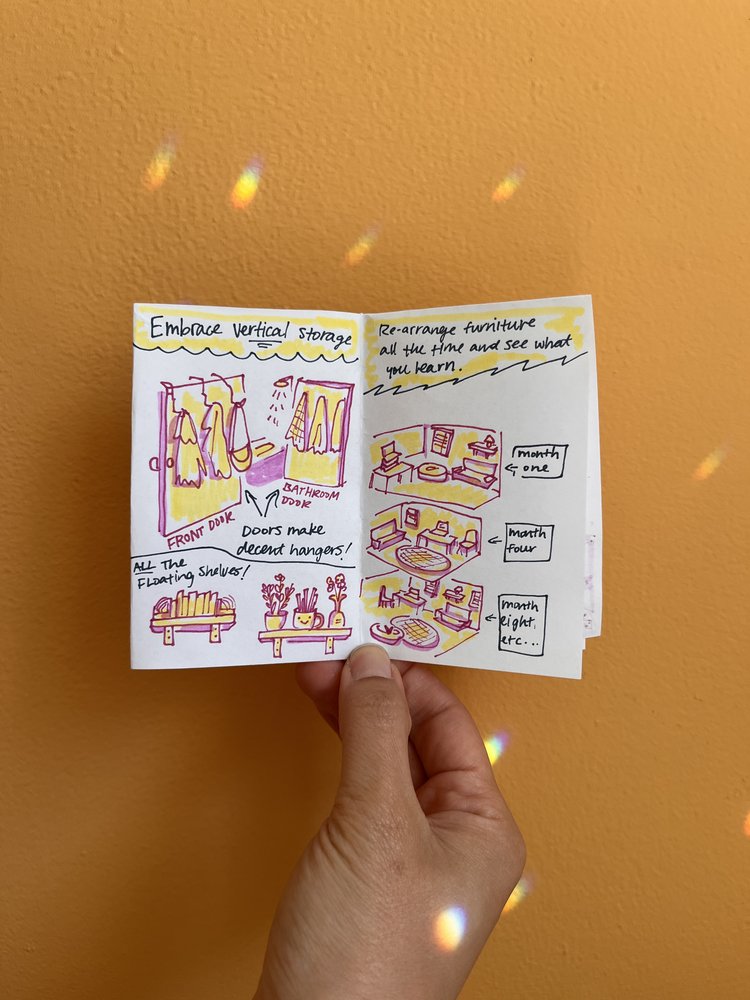 Embrace vertical storage
FRONT DOOR
BATHROOM
DOOR
Doors make
decent hangers!
ALL The
Floating shelves!
Re-arrange furniture
all the time and see what
you learn.
month
one
month
four
month
eight,
etc...